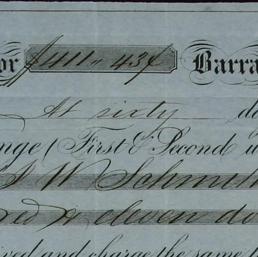 or $411.43/ Barra
At sixty d
nge (First & Second u
J W Schmi
red & eleven do
ived and charge the same t